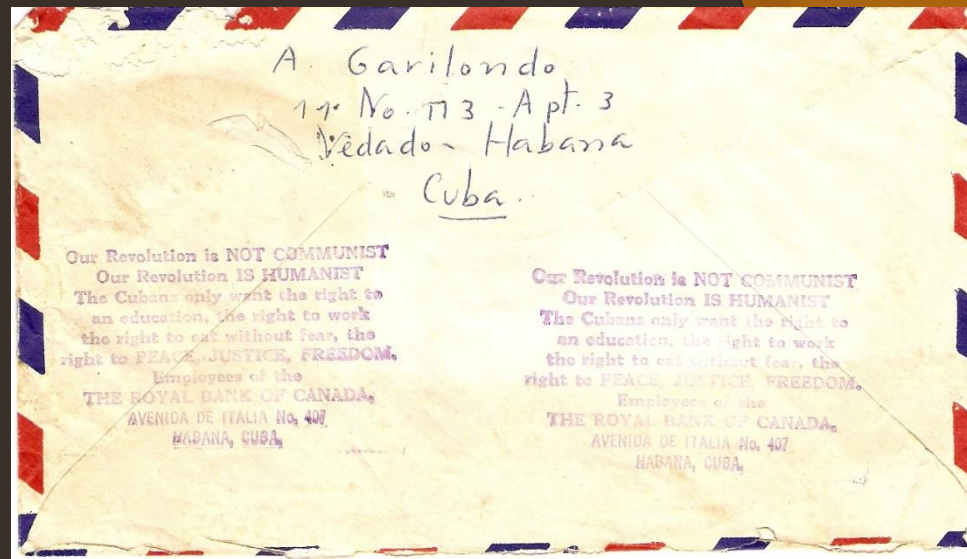 A. Garilondo
11. No. 773 - Apt. 3
Vedado - Habana
Cuba.
Our Revolution is NOT COMMUNIST
Our Revolution IS HUMANIST
The Cubans only want the right to
an education, the right to work
the right to eat without fear, the
right to PEACE, JUSTICE, FREEDOM.
Employees of the
THE ROYAL BANK OF CANADA,
AVENIDA DE ITALIA No. 407
HABANA, CUBA,
Our Revolution is NOT COMMUNIST
Our Revolution IS HUMANIST
The Cubans only want the right to
an education, the right to work
the right to eat without fear, the
right to PEACE, JUSTICE, FREEDOM.
Employees of the
THE ROYAL BANK OF CANADA,
AVENIDA DE ITALIA No. 407
HABANA, CUBA,